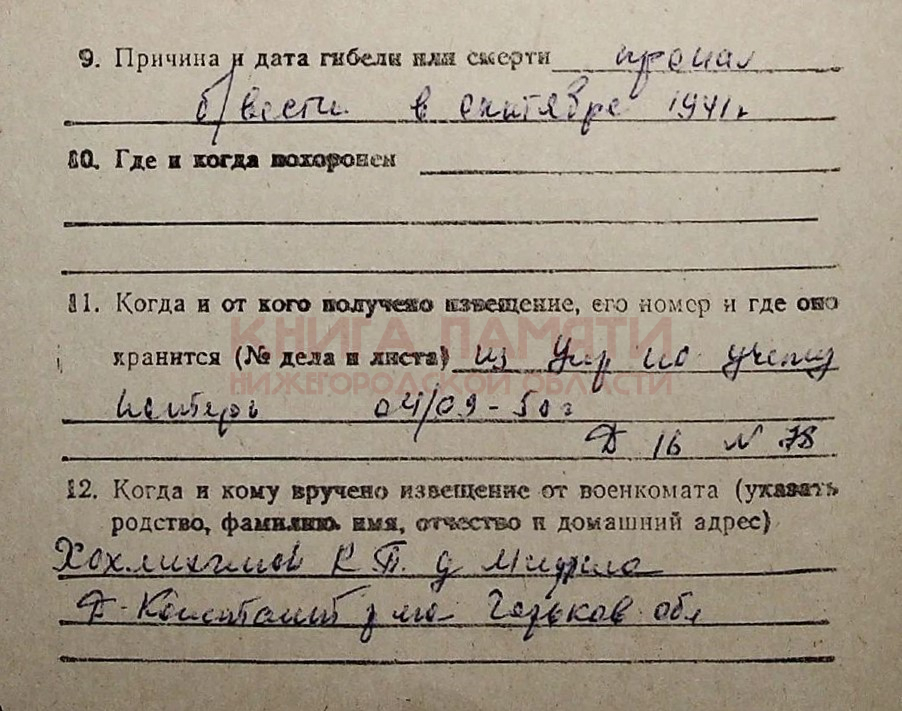 9. Причина и дата гибели или смерти пропал
б/вести в сентябре 1941 г
10. Где и когда похоронен
11. Когда и от кого получено извещение, его номер и где оно
КНИГА ПАМЯТИ
хранится (№ дела и листа) из Упр по учету
НИЖЕГОРОДСКОЙ ОБЛАСТИ
потерь 04/09-50 г
Д 16 N 78
12. Когда и кому вручено извещение от военкомата (указать
родство, фамилию, имя, отчество и домашний адрес)
К П. д
Д-Константин Горьков обл